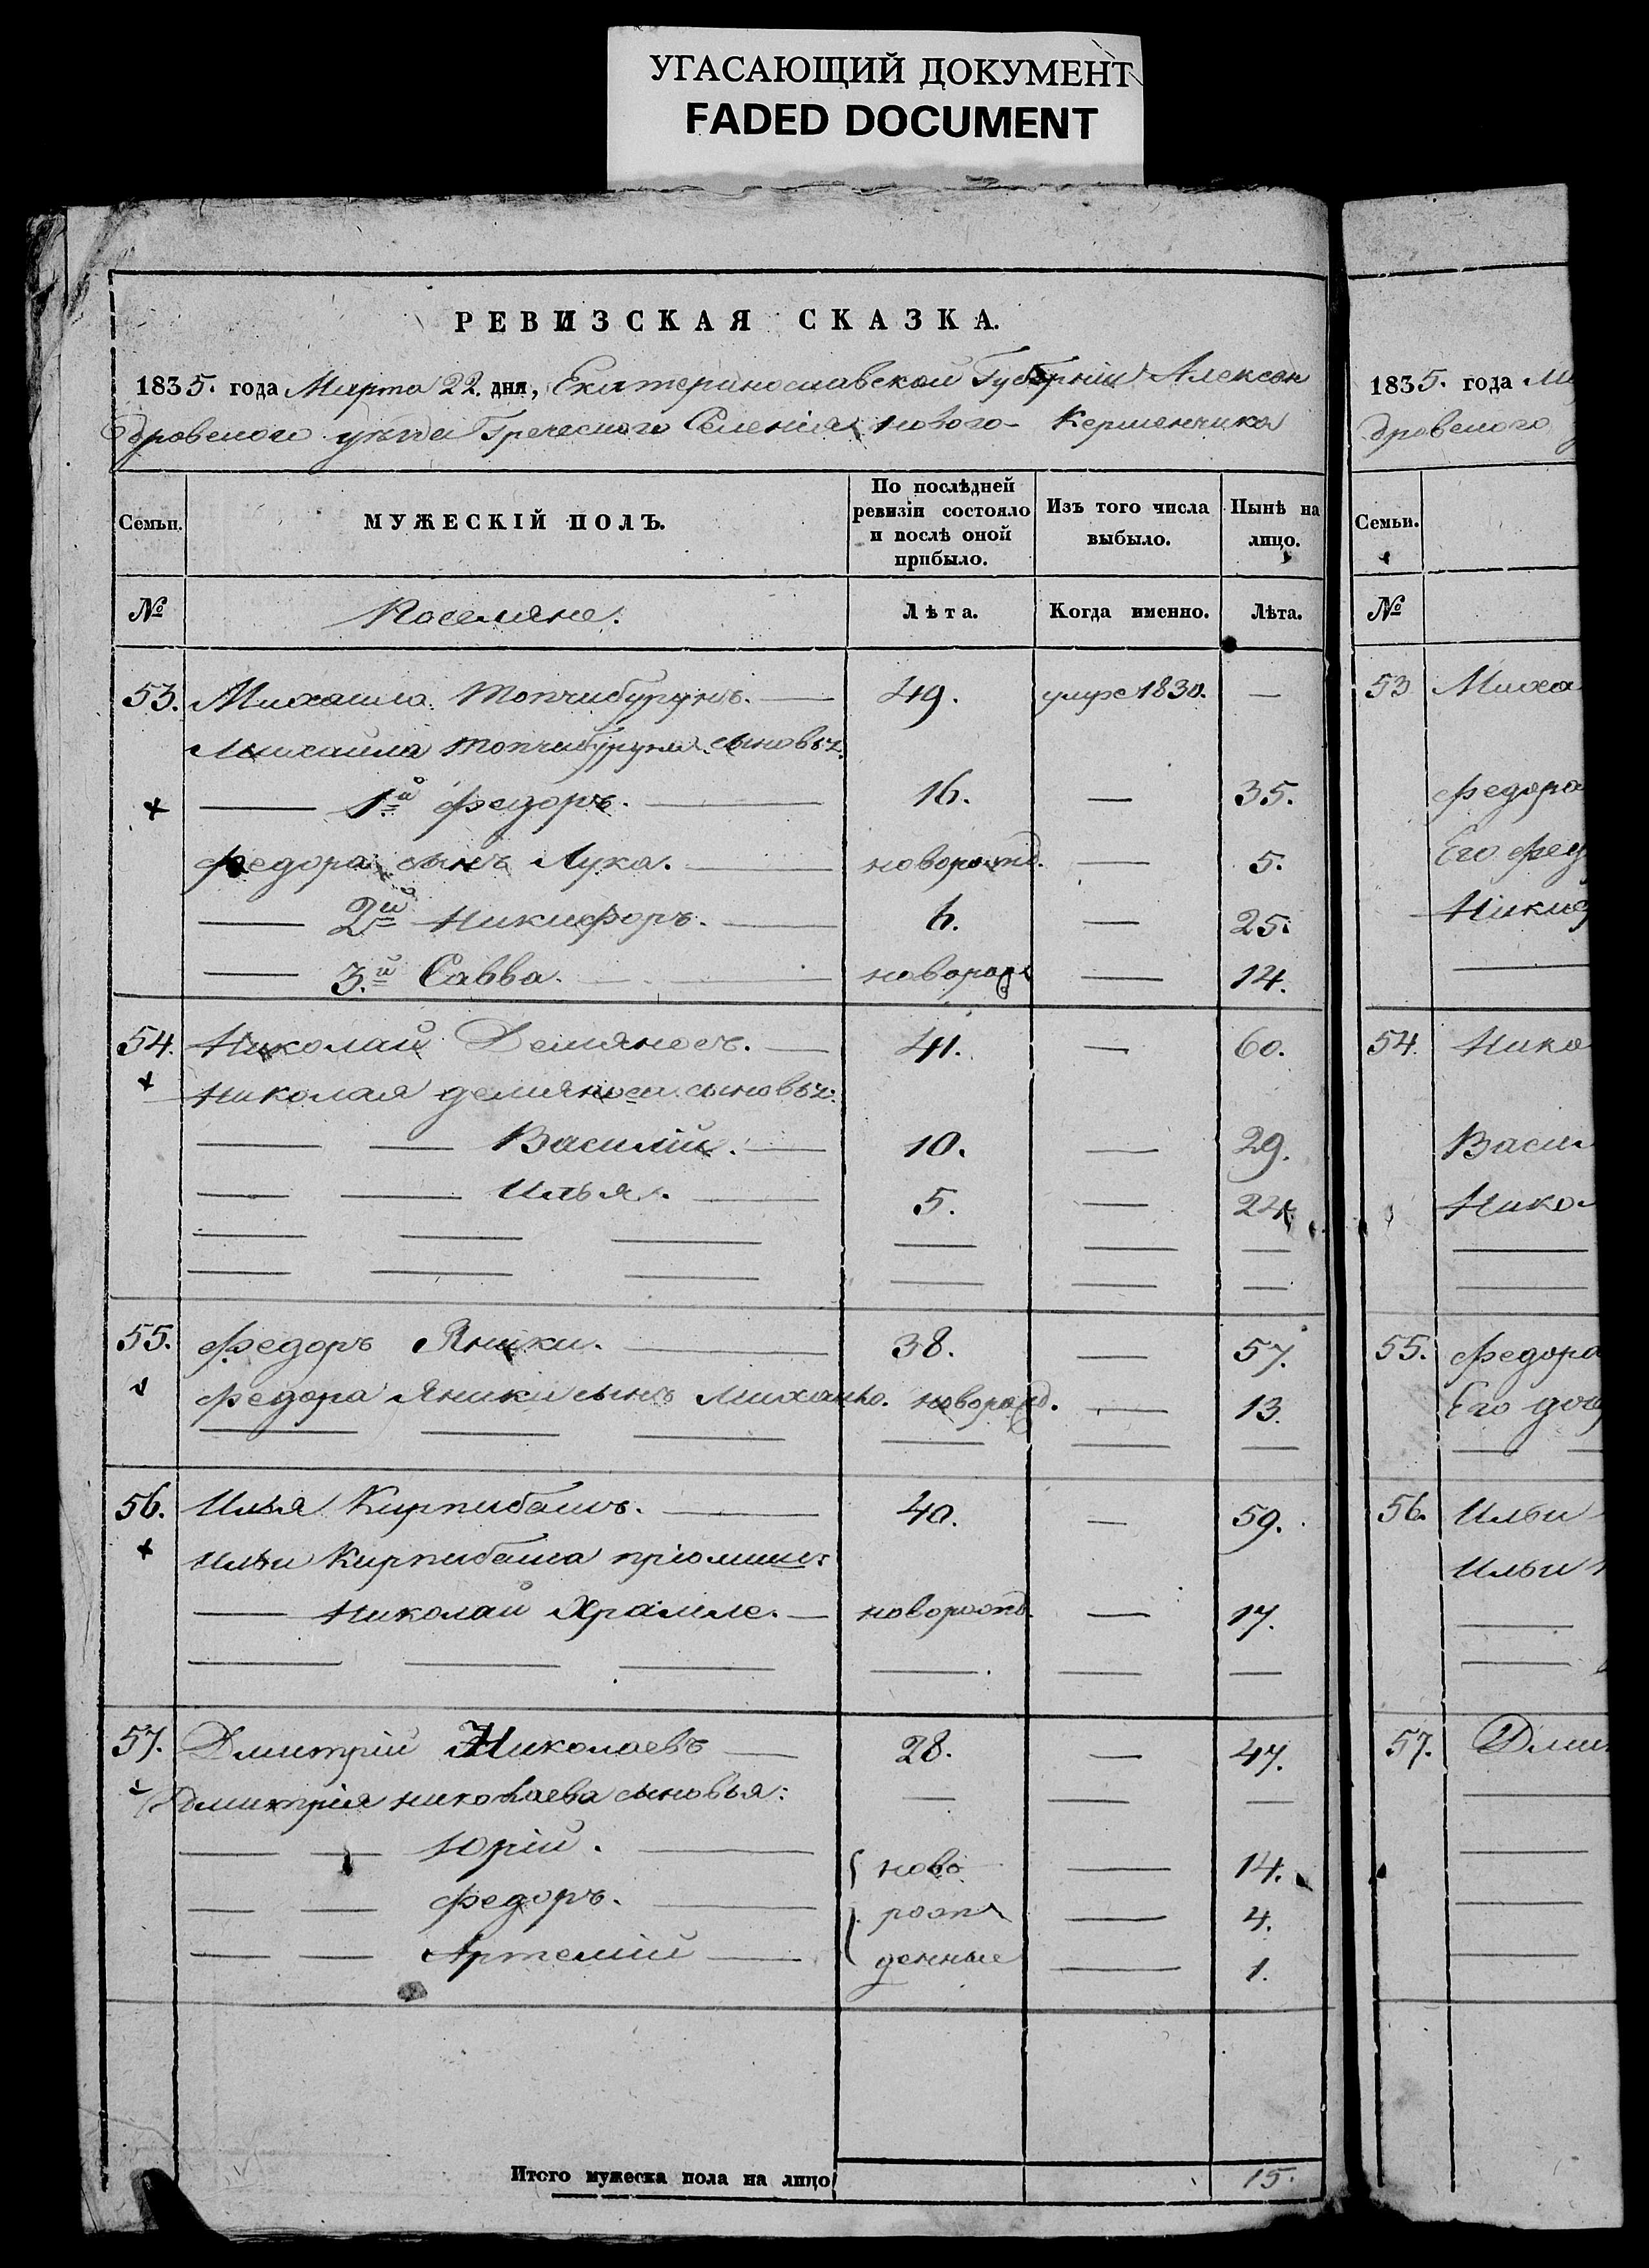 УГАСАЮЩИЙ ДОКУМЕНТ
FADED DOCUMENT
РЕВИЗСКАЯ СКАЗКА.
1835. года Марта 22. дня, Екатеринославской Губерніи Алексан
дровского уѣзда Греческого Селенія нового Керменчика
Семьи. МУЖЕСКІЙ ПОЛЪ. По послѣдней ревизіи состояло и послѣ оной прибыло. Изъ того числа выбыло. Нынѣ на лицо.
№ Поселяне. Лѣта. Когда именно. Лѣта.
53. Михаила Топчибурунъ. — 49. умре 1830. —
Михаила Топчибуруна сыновья:
— 1.й Федоръ. — 16. — 35.
Федора сынъ Лука. — новорожд. — 5.
— 2й Никифоръ. — 6. — 25.
— 3.й Савва. — новорожд — 14.
54. Николай Демяносъ. — 41. — 60.
Николая Демяноса сыновья:
— — Василій. — 10. — 29.
— — Илья. — 5. — 24.
55. Федоръ Яники. — 38. — 57.
Федора Яники сынъ Михайло. новорожд. — 13.
56. Илья Кирпибашъ. — 40. — 59.
Ильи Кирпибаша пріомыш:
— Николай Храмле. — новорожд. — 17.
57. Дмитрій Николаевъ — 28. — 47.
Дмитрія Николаева сыновья: — — —
— — Юрій. — ново — 14.
— — Федоръ. — рож — 4.
— — Артемій — денные — 1.
Итого мужеска пола на лицо 15.
1835. года М
дровского
Семьи.
№
53 Миха
Федора
Его Фед
Никиф
54. Нико
Васил
Никол
55. Федора
Его доч
56. Ильи
Ильи
57. Дми